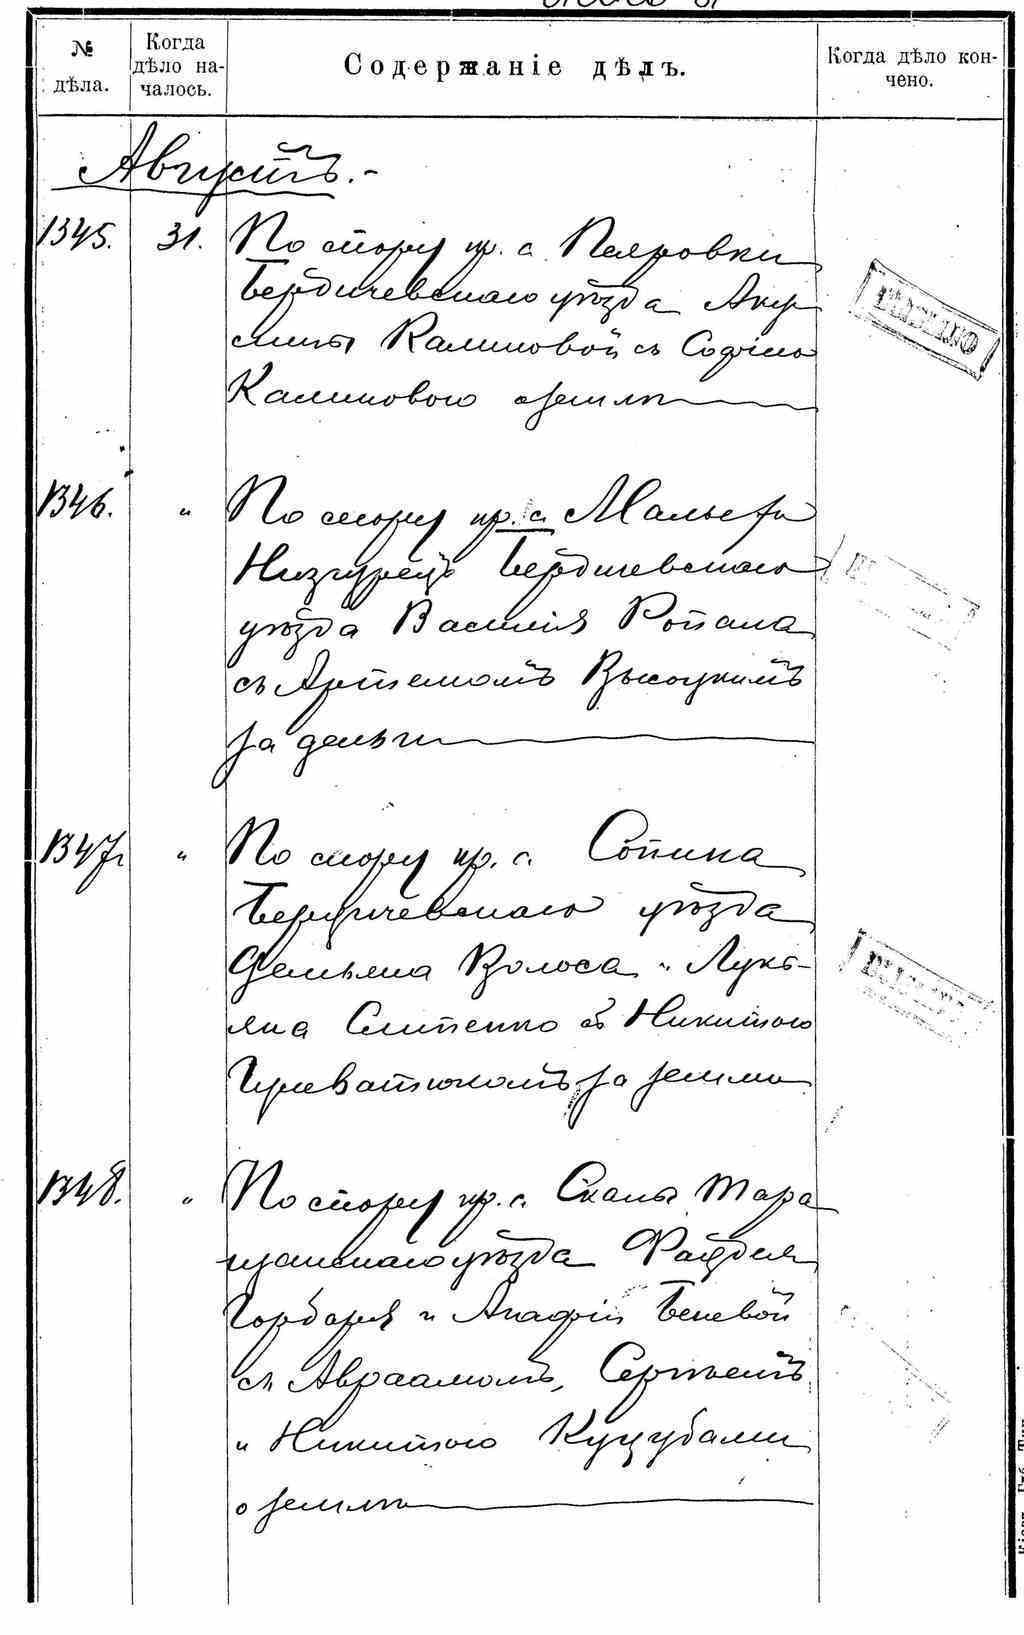 № дѣла.
Когда дѣло на-
чалось.
Содержаніе дѣлъ.
Когда дѣло кон-
чено.
Августъ.-
1345. 31. По спору кр. с.
Бердичевскаго уѣзда Аку
лины Калиновой съ Софіею
Калиновою о землѣ
1346. " По спору кр. с. Малыхъ
Низгурецъ Бердичевскаго
уѣзда Василія Ропана
съ Артемомъ Высоцкимъ
за деньги
1347. " По спору кр. с. Сопина
Бердичевскаго уѣзда
Демьяна Волоса и Лукь-
яна Слипенко съ Никитою
за землю
1348. " По спору кр. с. Скалы Тара
щанскаго уѣзда Фаддея
Горбаря и Агафіи Беневой
съ Авраамомъ, Сергѣемъ
и Никитою Куцубами
о землѣ
РѢШЕНО